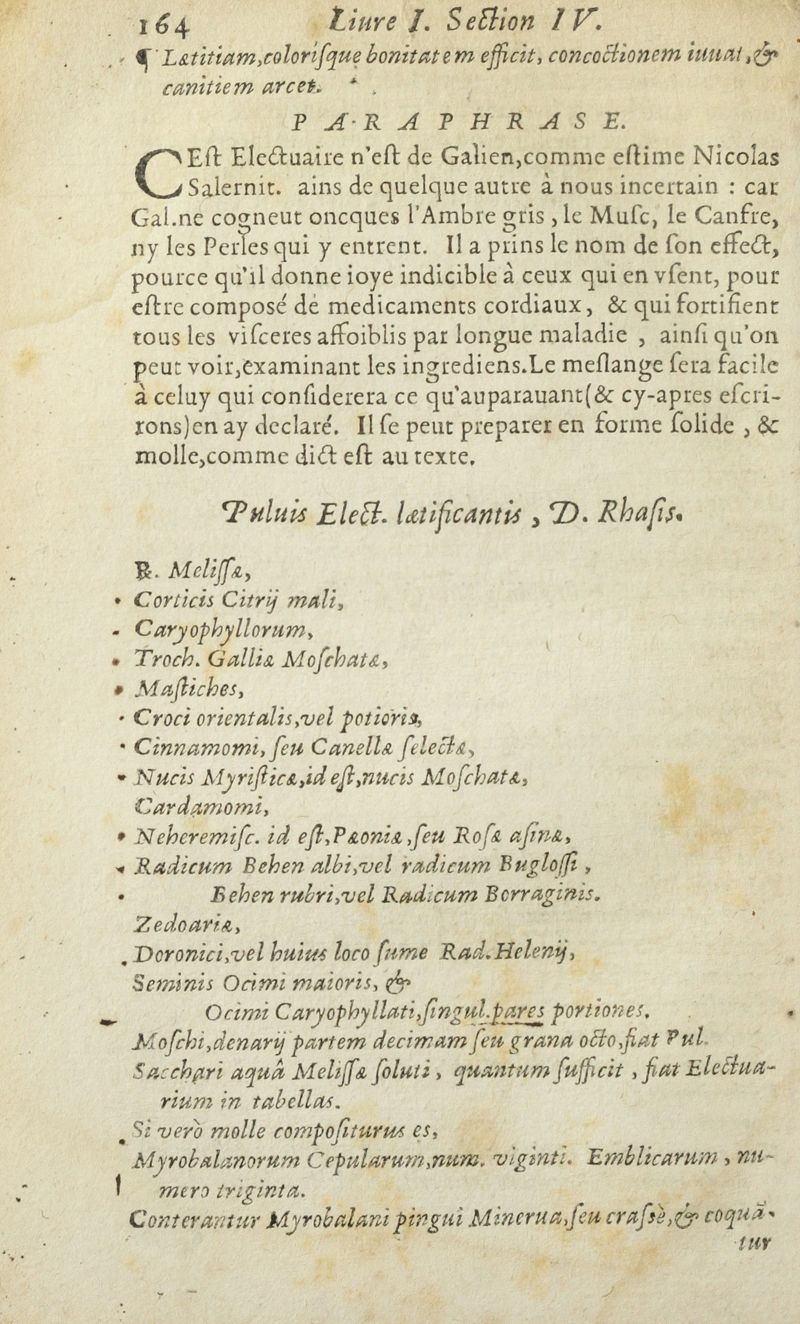 164 Liure I. Section IV.
¶ Lætitiam,colorisque bonitatem efficit, concoctionem iuuat,&
canitiem arcet.
PARAPHRASE.
CEst Electuaire n'est de Galien,comme estime Nicolas
Salernit. ains de quelque autre à nous incertain : car
Gal.ne cogneut oncques l'Ambre gris , le Musc, le Canfre,
ny les Perles qui y entrent. Il a prins le nom de son effect,
pource qu'il donne ioye indicible à ceux qui en vsent, pour
estre composé dé medicaments cordiaux, & qui fortifient
tous les visceres affoiblis par longue maladie , ainsi qu'on
peut voir,examinant les ingrediens.Le meslange sera facile
à celuy qui considerera ce qu'auparauant(& cy-apres escri-
rons)en ay declaré. Il se peut preparer en forme solide , &
molle,comme dict est au texte.
Puluis Elect. lætificantis , D. Rhasis.
℞. Melissæ,
Corticis Citrij mali,
Caryophyllorum,
Troch. Galliæ Moschatæ,
Mastiches,
Croci orientalis,vel potioris,
Cinnamomi, seu Canellæ selectæ,
Nucis Myristicæ,id est,nucis Moschatæ,
Cardamomi,
Neheremisc. id est,Pæoniæ,seu Rosæ asinæ,
Radicum Behen albi,vel radicum Buglossi ,
Behen rubri,vel Radicum Borraginis.
Zedoariæ,
Doronici,vel huius loco sume Rad.Helenij,
Seminis Ocimi maioris, &
Ocimi Caryophyllati,singul.pares portiones.
Moschi,denarij partem decimam seu grana octo,fiat Pul.
Sacchari aquâ Melissæ soluti , quantum sufficit , fiat Electua-
rium in tabellas.
Si verò molle compositurus es,
Myrobalanorum Cepularum,num. viginti. Emblicarum , nu-
mero triginta.
Conterantur Myrobalani pingui Minerua,seu crassè,& coquã-
tur